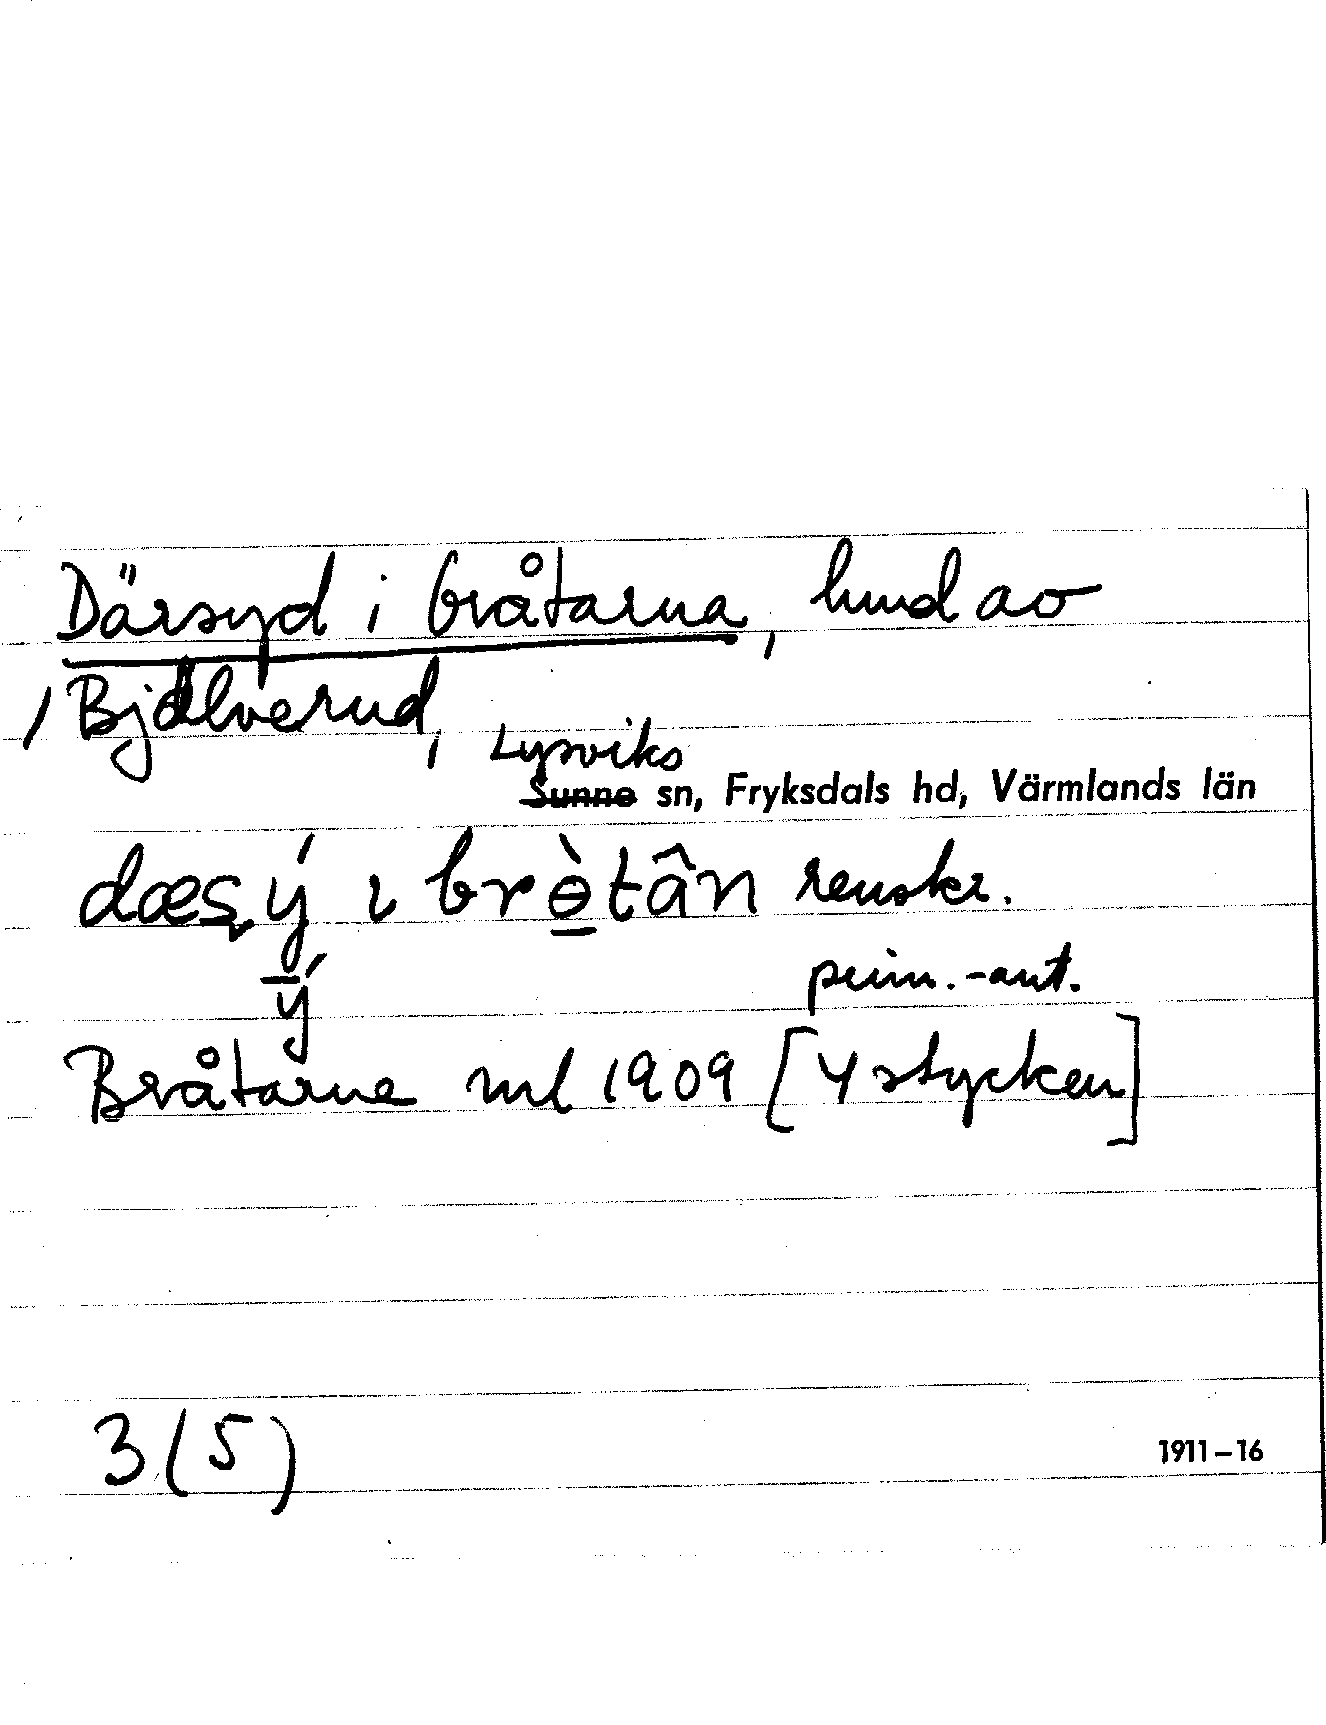 Därsyd i bråtarna, hmd av
/ Bjälverud,
Lysviks
Sunne sn, Fryksdals hd, Värmlands län
dæsý ı brɵ̀tân renskr.
ȳ́ prim.-ant.
Bråtarne ml 1909 [4 stycken]
3 (5)
1911–16